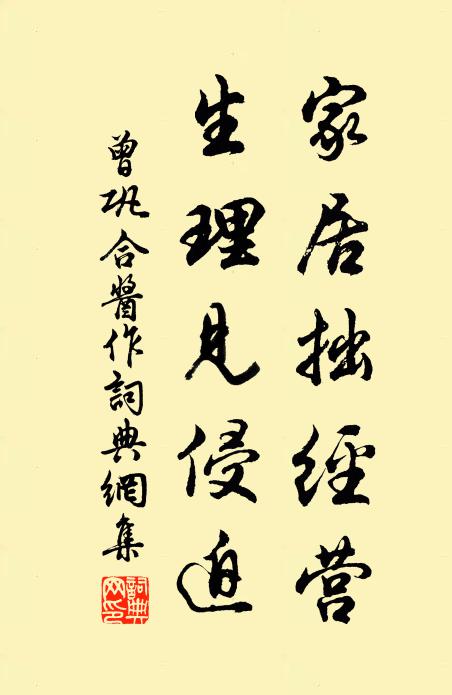 家居拙經营
生理見侵迫
曾巩合醬作詞典網集
詞典網印